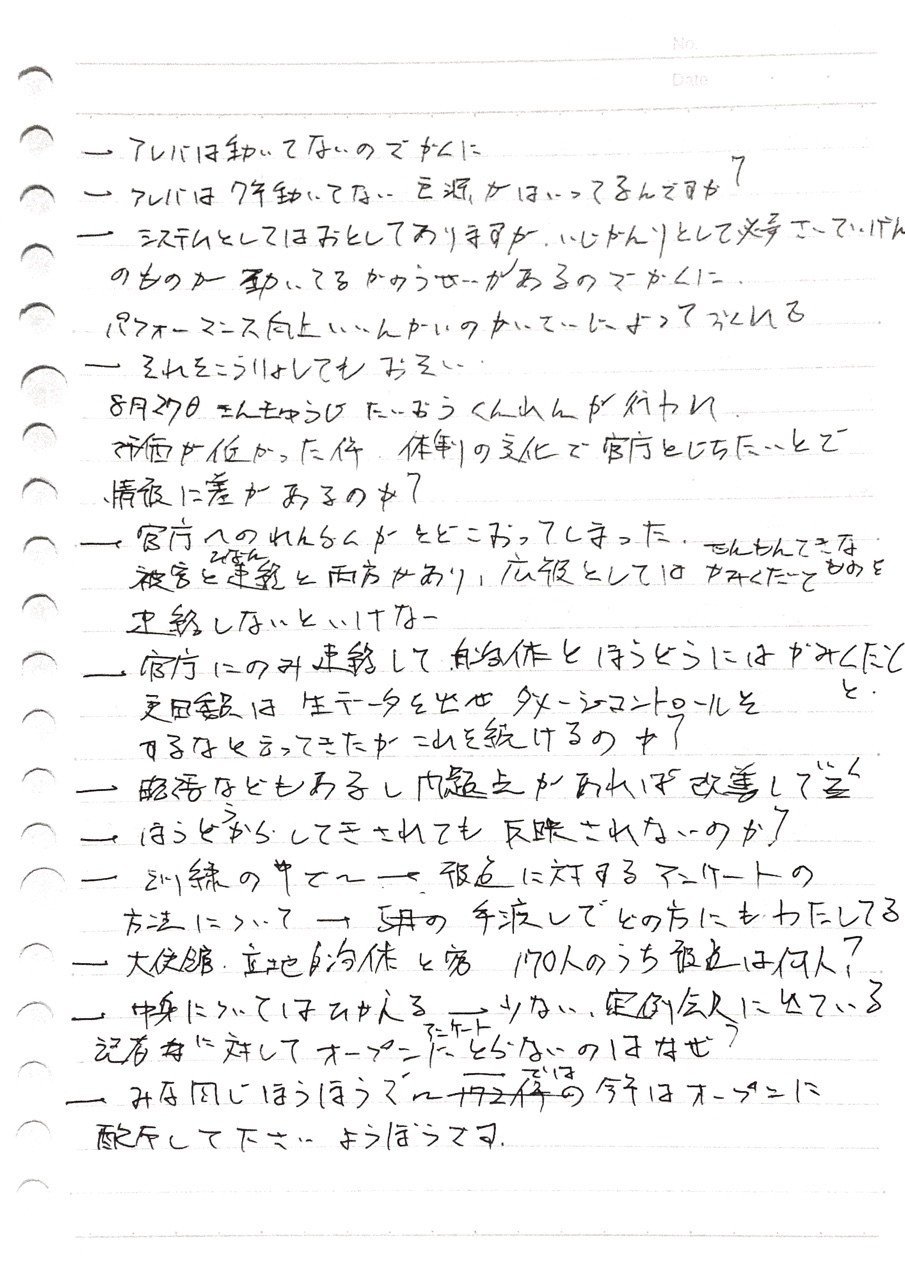 No.
Date
— アレバは動いてないのでかくに
— アレバは7年動いてない 電源がはいってるんですか?
— システムとしてはおとしておりますが、いじかんりとして必要さいていげん
のものが動いてるかのうせーがあるのでかくに.
パフォーマンス向上いいんかいのかいていによっておくれる
— それをこうりょしてもおそい.
8月27日 きんきゅうじ たいおう くんれんが行われ
評価が低かった件. 体制の文化で官庁とじちたいとで
情報に差があるのか?
— 官庁へのれんらくがとどこおってしまった.
被害と連絡と両方があり、広報としては かみくだいて
せんもんてきな
ものを
連絡しないといけなー
— 官庁にのみ連絡して自治体とほうどうにはかみくだくと.
更田委員は生データを出せ ダメージコントロールを
するなと言ってきたがこれを続けるのか?
— 略語などもあるし問題点があれば改善して
— ほうどうからしてきされても反映されないのか?
— 訓練の中で〜 → 報道に対するアンケートの
方法について → の手渡しでどの方にもわたしてる
— 大使館. 立地自治体と 170人のうち報道は何人?
— 中身についてはひかえる → 少ない、定例会見に出ている
記者 に対してオープンにとらないのはなぜ?
アンケート
— みな同じほうほうで〜 では 今年はオープンに
配布して下さい ようぼうです.